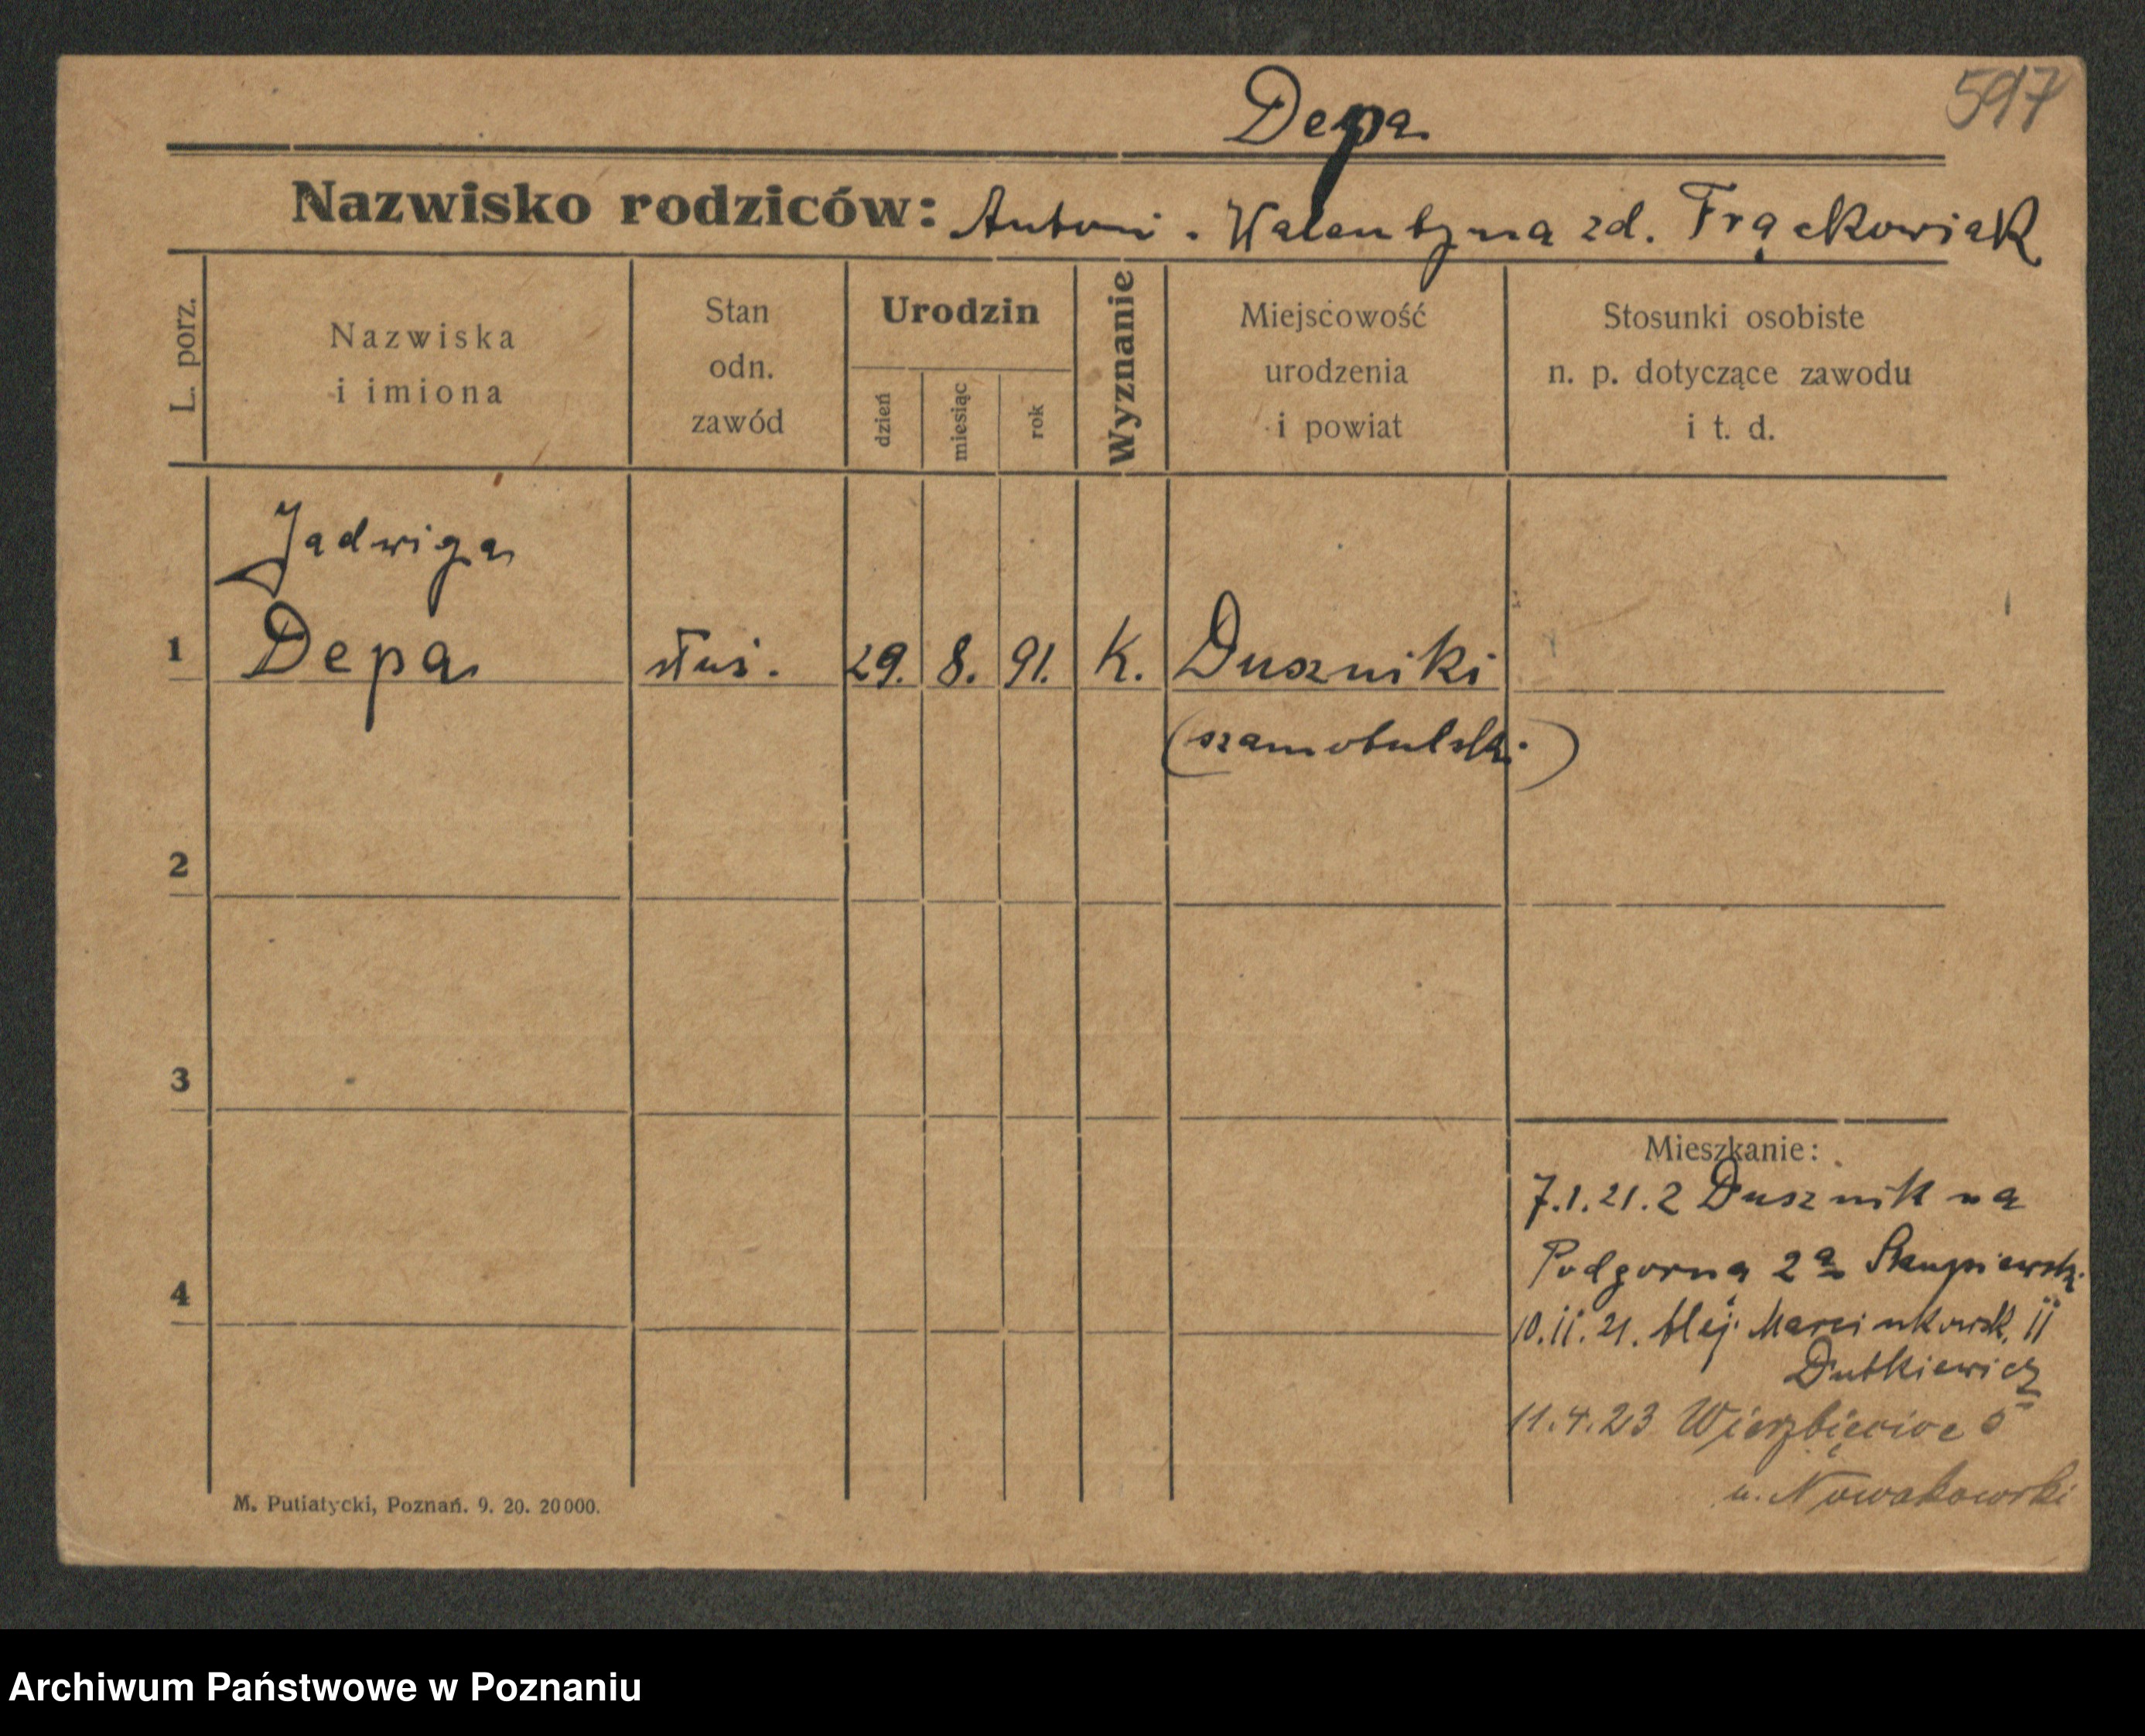 597
Depa
Nazwisko rodziców: Antoni. Walentyna zd. Frąckowiak
L. porz.
Nazwiska
i imiona
Stan
odn.
zawód
Urodzin
dzień
miesiąc
rok
Wyznanie
Miejscowość
urodzenia
i powiat
Stosunki osobiste
n. p. dotyczące zawodu
i t. d.
Jadwiga
1 Depa służ. 29. 8. 91. K. Duszniki
(szamotulski)
2
3
4
Mieszkanie:
7.1.21. z Dusznik na
Podgorną 2a
10.ii.21. Alej. Marcinkowsk. ii
Dutkiewicz
11.4.23 Wierzbięcice 5
u. Nowakowski
M. Putiatycki, Poznań. 9. 20. 20000.
Archiwum Państwowe w Poznaniu